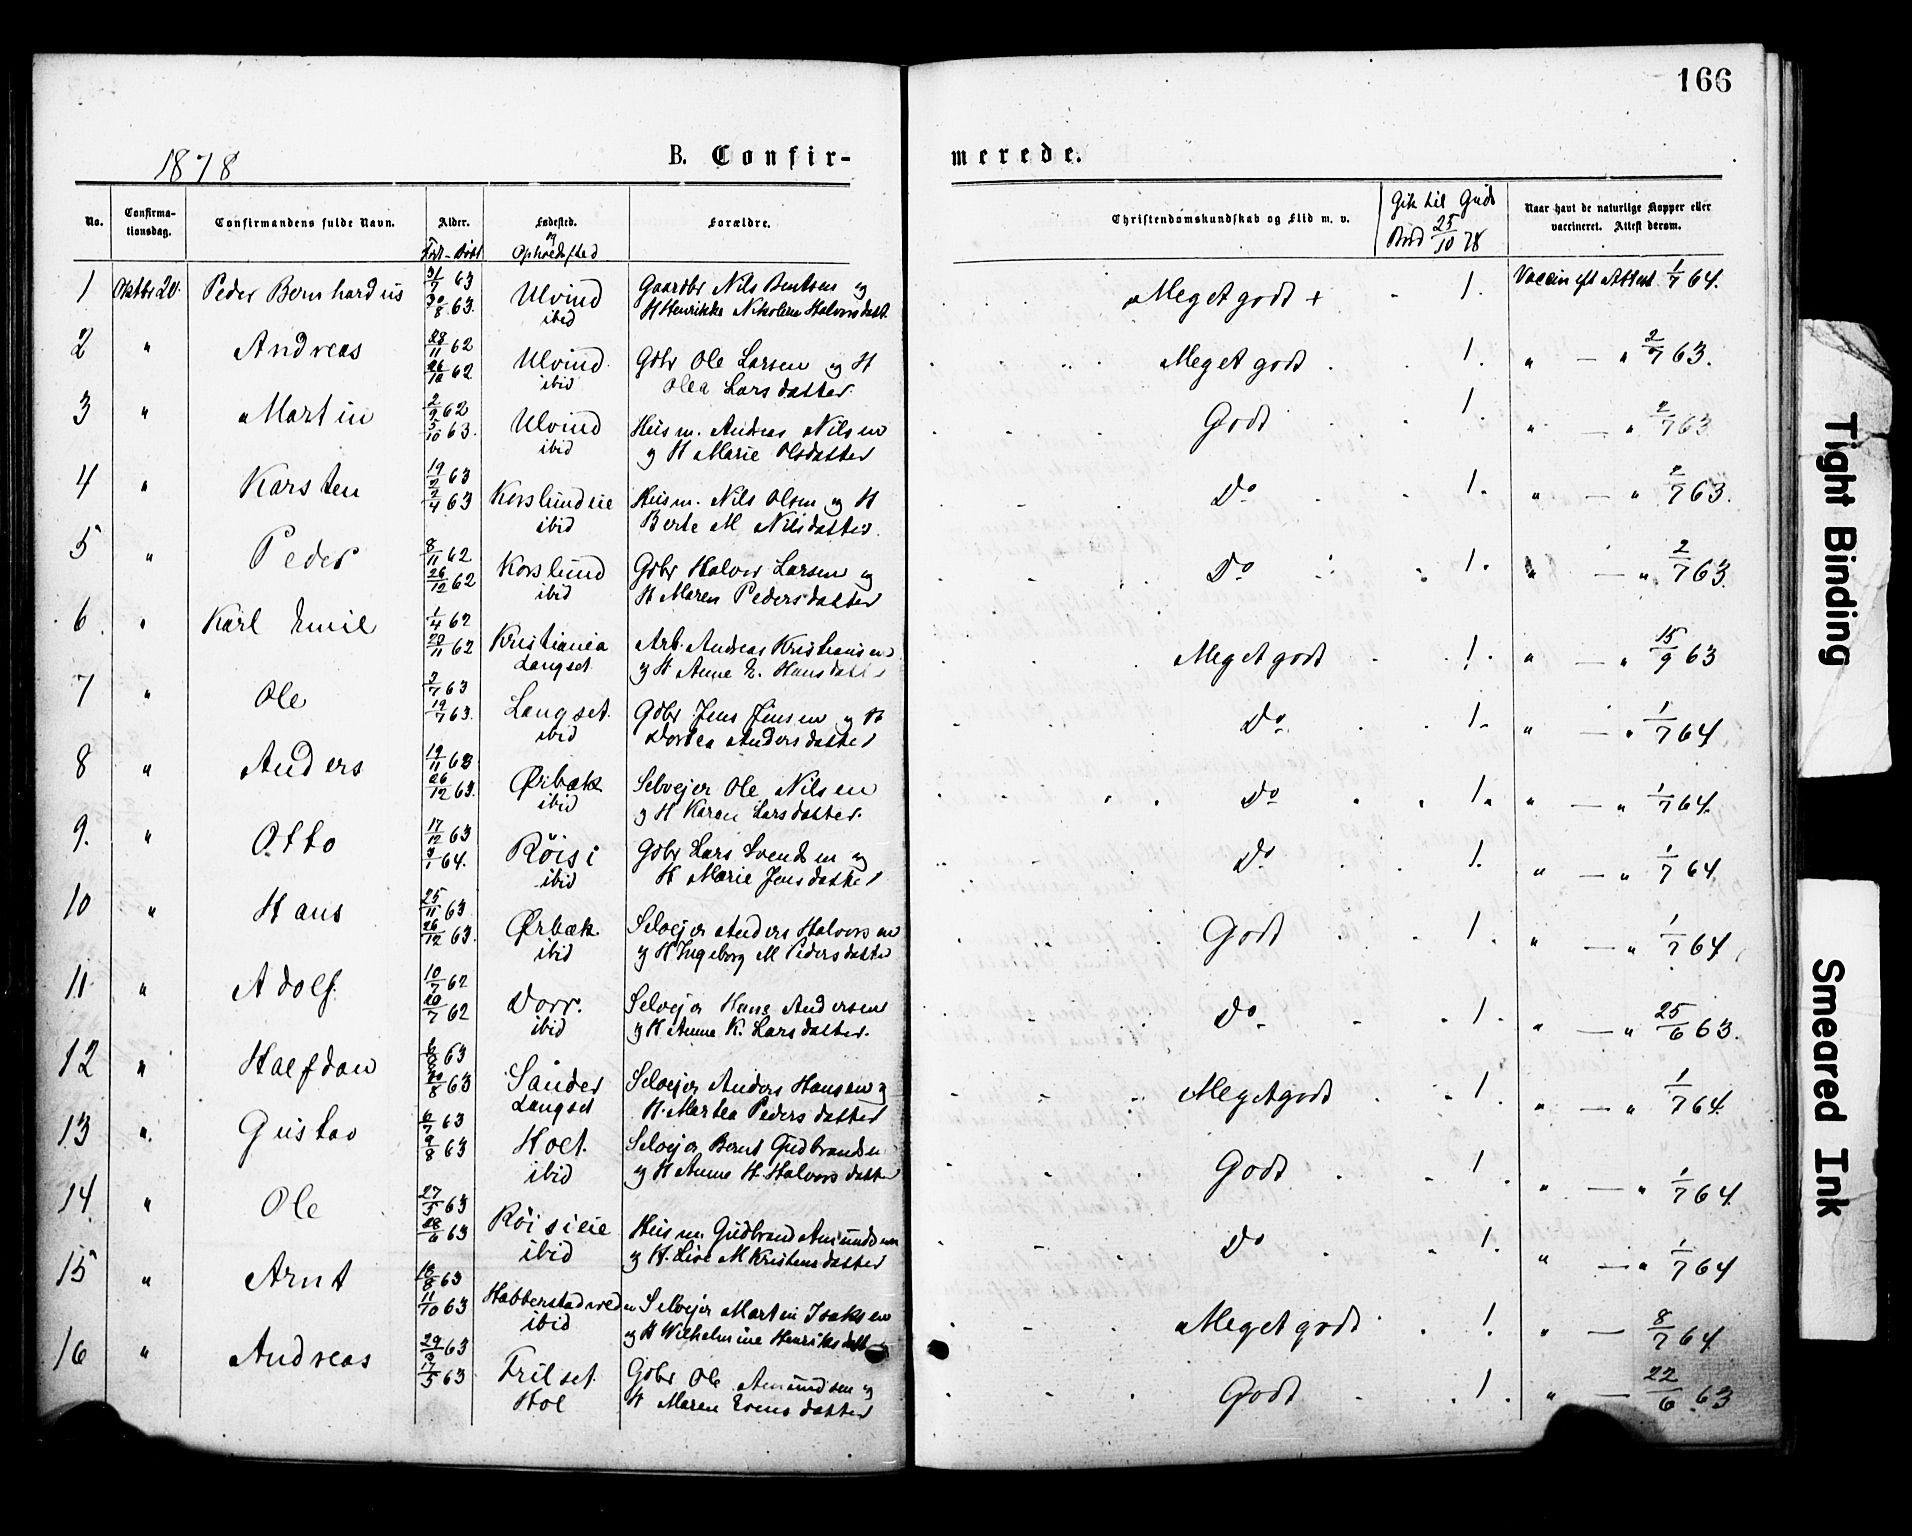 166
1878
B. Confir-
merede.
No.
Confirma-
tionsdag.
Confirmandens fulde Navn.
Alder.
Fødested.
og
Opholdssted
Forældre.
Christendomskundskab og Flid m. v.
Gik til Guds
Bord 25/10 78
Naar havt de naturlige Kopper eller
vaccineret. Attest derom.
1 Oktbr 20. Peder Bernhardus 31/7 63 30/8 63. Ulvind ibid Gaardbr Nils Bentsen og
H Henrikke Nikoline Halvorsdatt. Meget godt + 1. Vaccin eft Attest 1/7 64.
2 " Andreas 28/11 62 26/12 62 Ulvind ibid Gdbr Ole Larsen og H
Olea Larsdatter. Meget godt 1. " — " 2/7 63.
3 " Martin 62 5/10 63. Ulvind ibid Husm. Andreas Nilsen
og H Marie Olsdatter Godt 1. " — " 2/7 63
4 " Karsten 19/2 63 2/4 63 Korslundeie ibid Husm. Nils Olsen og H
Berte M Nilsdatter. Do 1. " — " 2/7 63.
5 " Peder 8/11 62 26/12 62 Korslund ibid Gdbr Halvor Larsen og
H Maren Pedersdatter Do 1. " — " 2/7 63.
6 " Karl Emil 1/4 62 20/11 62 Kristiania Langset Arb. Andreas Kristiansen
og H Anne E. Hansdatter Meget godt 1. " — " 15/9 63
7 " Ole 2/7 63 19/7 63. Langset. ibid Gdbr Jens Jensen og H
Dortea Andersdatter Do 1. " — " 1/7 64
8 " Anders 19/11 63 26/12 63. Ørbæk ibid Selvejer Ole Nilsen
og H Karen Larsdatter. Do 1. " — " 1/7 64.
9. " Otto 17/12 63 64. Röisi ibid Gdbr Lars Svendsen og
H Marie Jensdatter Do 1. " — " 1/7 64
10 " Hans 25/11 63 26/12 63. Ørbæk ibid Selvejer Anders Halvorsen
og H Ingeborg M Pedersdatter Godt 1. " — " 1/7 64
11 " Adolf. 10/7 62 20/7 62 Dorr. ibid Selvejer Hans Andersen
og H Anne K. Larsdatter. Do 1. " — " 25/6 63.
12 " Halfdan 63 30/8 63 Sander Langset Selvejer Anders Hansen og
H. Martea Pedersdatter Meget godt 1. " — " 1/7 64.
13 " Gustav 6/7 63 9/8 63 Hol. ibid Selvejer Bernt Gudbrandsen
og H Anne H Halvorsdatter Godt 1. " — " 1/7 64.
14 " Ole 27/5 63 28/6 63 Röisieie ibid Husm. Gudbrand Amundsen
og H. Live M Kristensdatter Do 1. " — " 1/7 64
15 " Arnt 18/8 63 11/10 63 Habberstadveden ibid Selvejer Martin Isaksen
og H Wilhelmine Henriksdatt Meget godt 1. " — 8/7 64
16 " Andreas 29/3 63 17/5 63 Frilset Hol Gdbr Ole Amundsen og
H Maren Evensdatter Godt 1. " — 22/6 63
Tight Binding
Smeared Ink